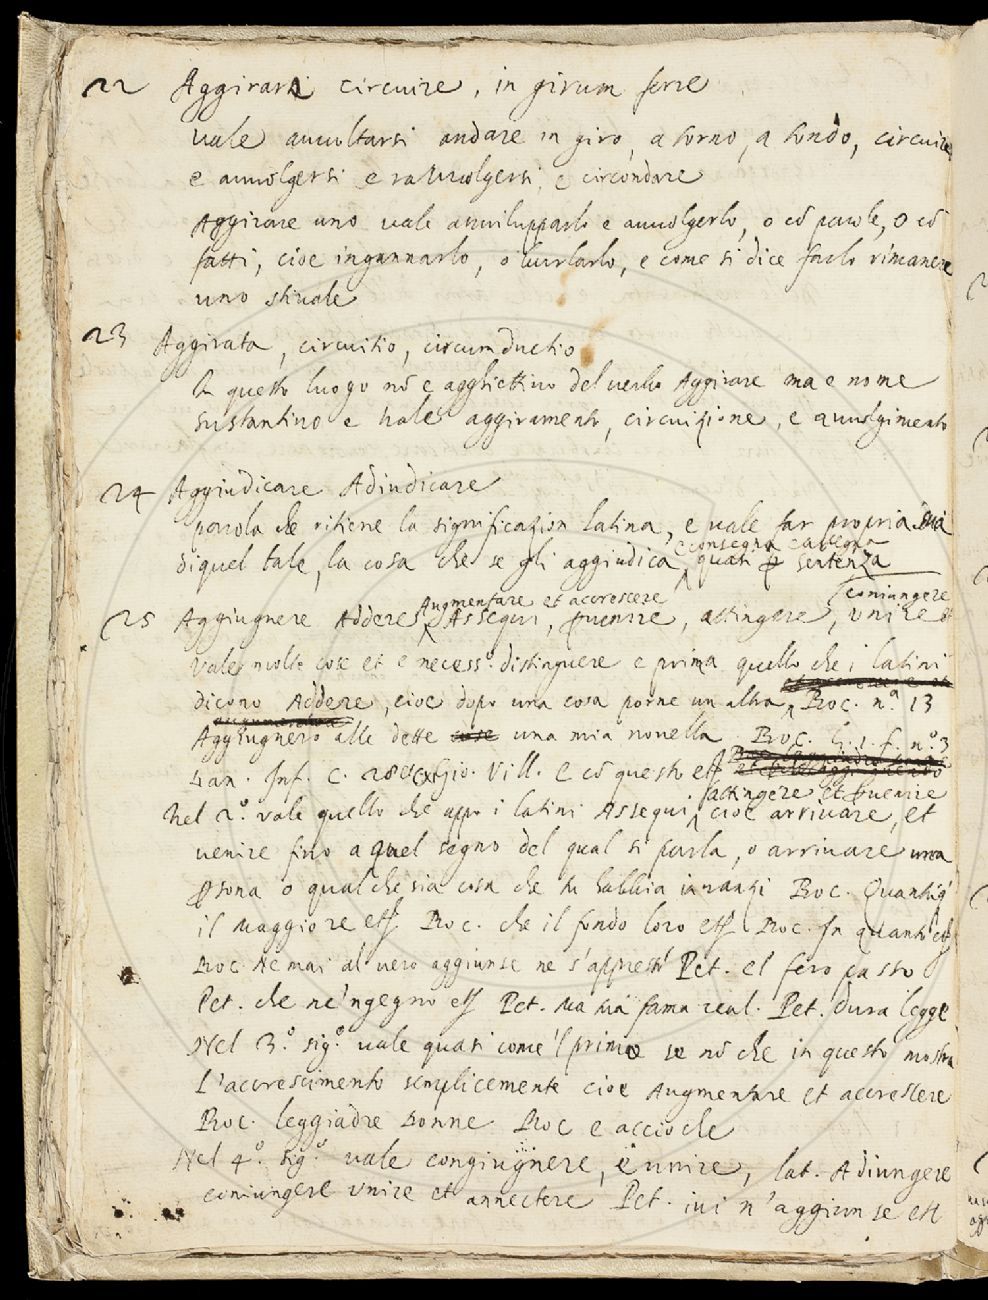 22 Aggirarsi circuire, in girum ferre
vale auuoltarsi andare in giro, a torno, a tondo, circuire
e auuolgersi e rauuolgersi, e circondare
Aggirare uno vale auuilupparlo e auuolgerlo, o cō parole, o cō
fatti, cioe ingannarlo, o burlarlo, e come si dice farlo rimanere
uno stiuale
23 Aggirata, circuitio, circumductio
In questo luogo nō e agghiettiuo del uerbo Aggirare ma e nome
sustantiuo e uale aggiramento, circuizione, e auuolgimento
24 Aggiudicare Adiudicare
parola che ritiene la significazion latina, e uale far propria sua
e consegna e assegna
di quel tale, la cosa che se gli aggiudica, quasi ꝑ sentenza
Augmentare et accrescere coniungere
25 Aggiugnere Addere, Assequi, ꝑuenire, attingere, unire et
Vale molte cose et e necess.o distinguere e prima quello che i latini
dicono Addere, cioe dopo una cosa porne un altra, Boc. n.a 13
Aggiugnero alle dette cose una mia nouella Boc. G. 1. f. n.o 3
Dan. Inf. c. 28 et Gio. Vill. e cō questo
attingere et ꝑuenire
Nel 2.o vale quello che appo i latini Assequi, cioe arriuare, et
uenire fino a quel segno del qual si parla, o arriuare una
ꝑsona o qual che sia cosa che tu habbia inanzi Boc.
il maggiore Boc. che il fondo loro Boc. In quanti
Boc. Ne mai al uero aggiunse ne s'appressò Pet. el fero passo
Pet. che ne'ngegno Pet. Ma sua fama real. Pet. dura legge
Nel 3.o sig.o uale quasi come 'l primo se nō che in questo mostra
l'accrescimento semplicemente cioe Augmentare et accrescere
Boc. leggiadre Donne Boc e accioche
Nel 4.o sig.o uale congiugnere, e unire, lat. Adiungere
coniungere unire et annectere Pet. iui n'aggiunse